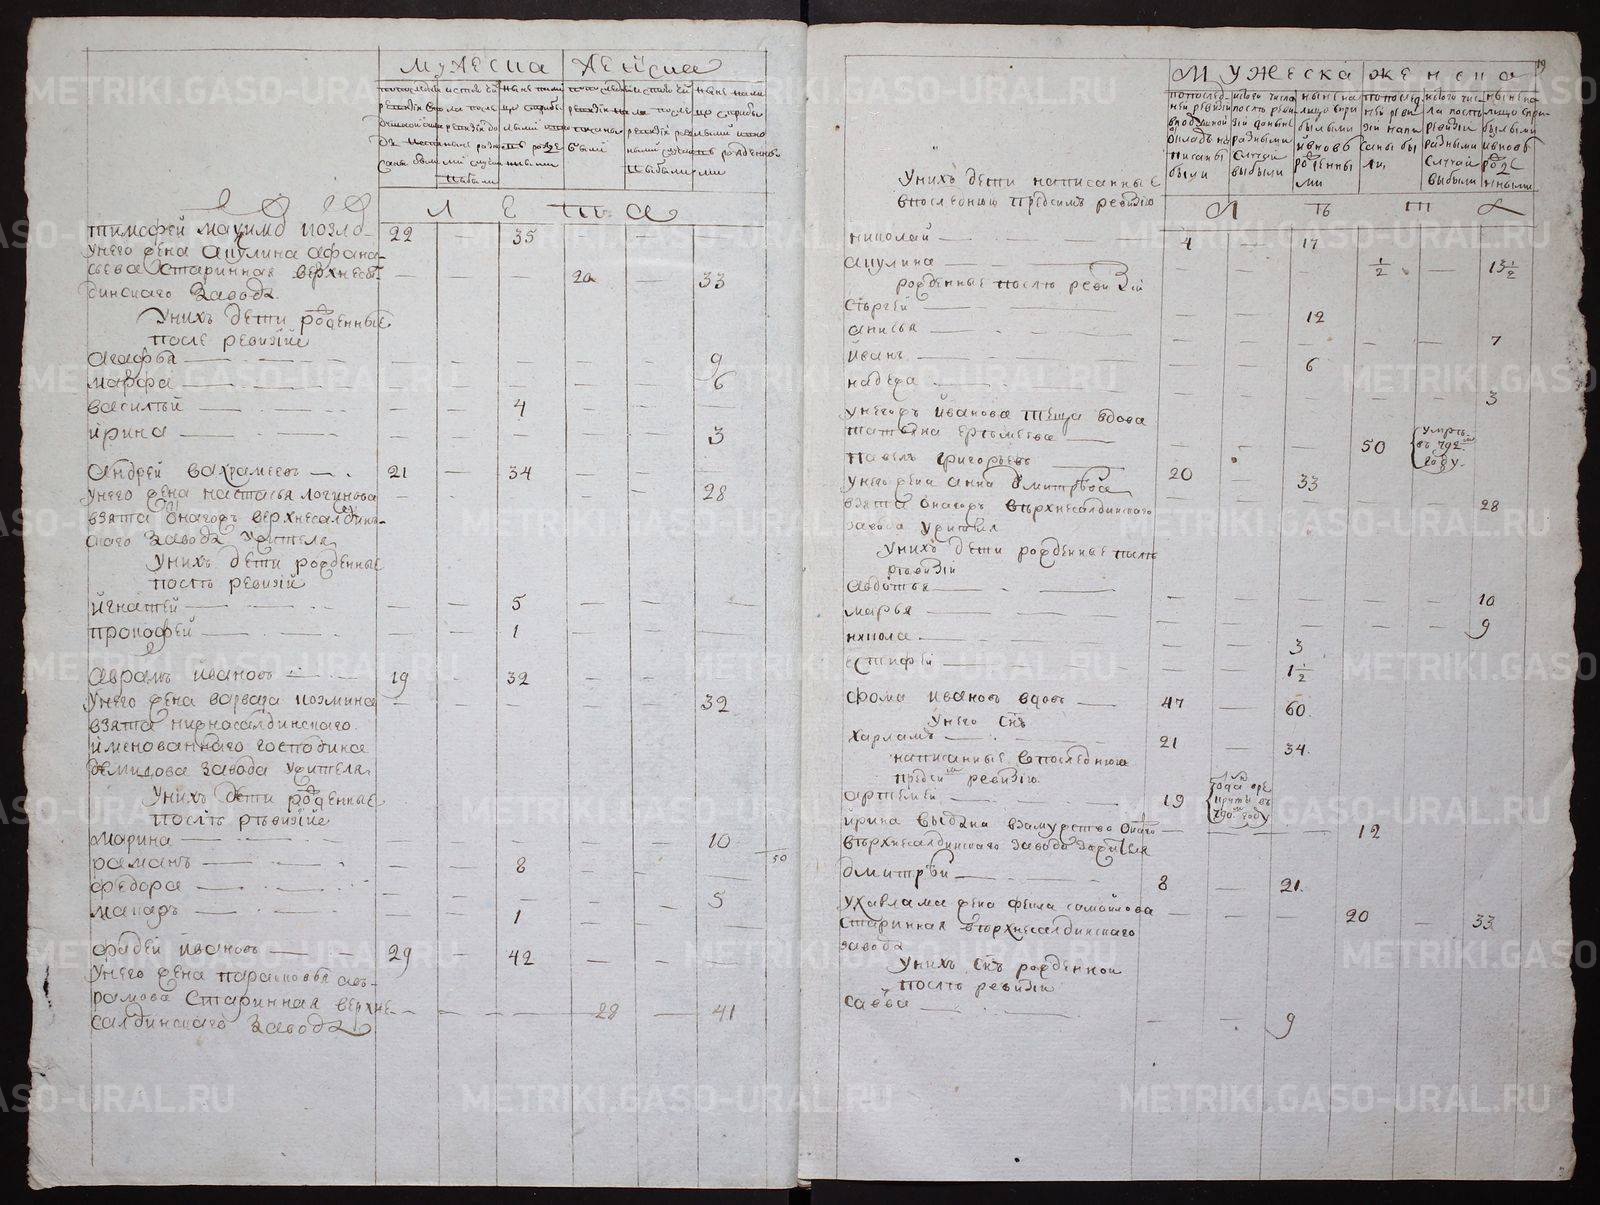 мужеска женска
л е т а
тимофей
35
22
унего жена акулина афана-
сьева старинная верхнесал-
20
33
динскаго завода
Унихъ дети рожденные
после ревизии
агафья
9
марфа
6
василий
4
ирина
3
андрей вахрамеевъ
21
34
унего жена настасья логинова
28
взята онагожъ верхнесалдин-
скаго завода жителя
Унихъ дети рожденные
после ревизии
игнатей
5
прокофей
1
аврамъ ивановъ
19
32
Унего жена варвара козмина
32
взята нижнесалдинскаго
именованнаго господина
демидова завода жителя
Унихъ дети рожденные
послъ ръвизии
марина
10
50
раманъ
8
федора
5
макаръ
1
фадей ивановъ
29
42
Унего жена парасковья ав-
рамова старинная верхне-
28
41
салдинскаго завода
19
мужеска женска
Унихъ дети написанные
впоследнюю предсимъ ревизию
л ъ т а
николай
4
17
акулина
1/2
13 1/2
рожденные послъ ревизии
сергей
12
анисья
7
иванъ
6
надежа
3
унегожъ иванова теща вдова
татьяна еремеева
50
умре
году
павелъ григорьевъ
20
33
унего жена анна дмитръева
28
взята онагожъ върхнесалдинскаго
завода жителя
Унихъ дети рожденные послъ
ръвизии
авдотья
10
марья
9
никола
3
естифей
1 1/2
фома ивановъ вдовъ
47
60
Унего снъ
харламъ
21
34
написанные впоследнюю
предсим ревизию
артемей
19
году
ирина выдана взамужство онаго
12
върхнесалдинскаго завода зажителя
дмитръй
8
21
ухарлама жена фекла самойлова
20
33
старинная върхнесалдинскаго
завода
Унихъ снъ рожденной
послъ ревизии
савва
9
METRIKI.GASO-URAL.RU